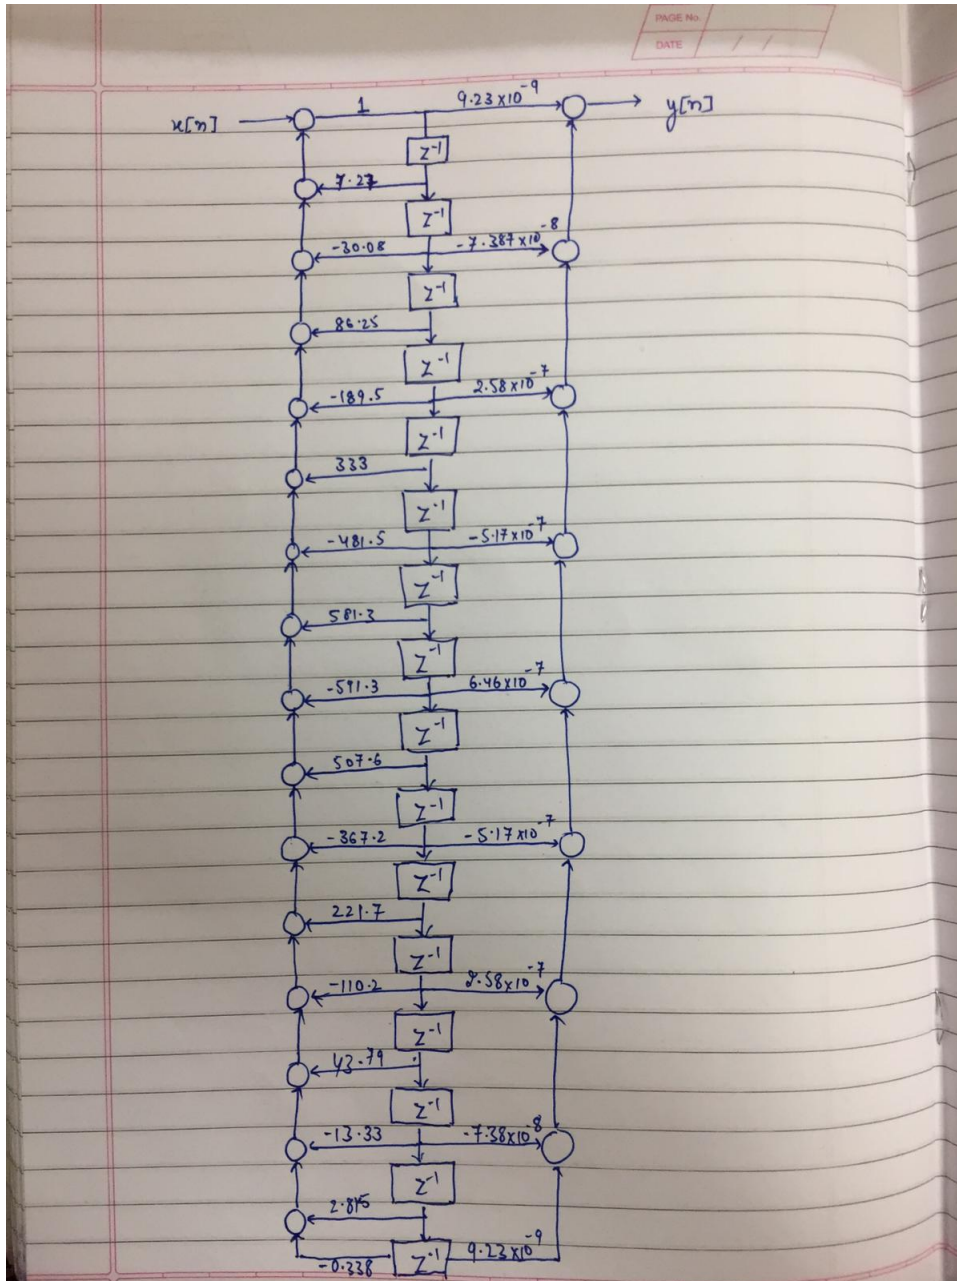 PAGE No.
DATE / /
x[n] 1 9.23x10^-9 y[n]
z^-1
7.27
z^-1
-30.08 -7.387x10^-8
z^-1
86.25
z^-1
-189.5 2.58x10^-7
z^-1
333
z^-1
-481.5 -5.17x10^-7
z^-1
581.3
z^-1
-591.3 6.46x10^-7
z^-1
507.6
z^-1
-367.2 -5.17x10^-7
z^-1
221.7
z^-1
-110.2 2.58x10^-7
z^-1
43.79
z^-1
-13.33 -7.38x10^-8
z^-1
2.815
-0.338 z^-1 9.23x10^-9